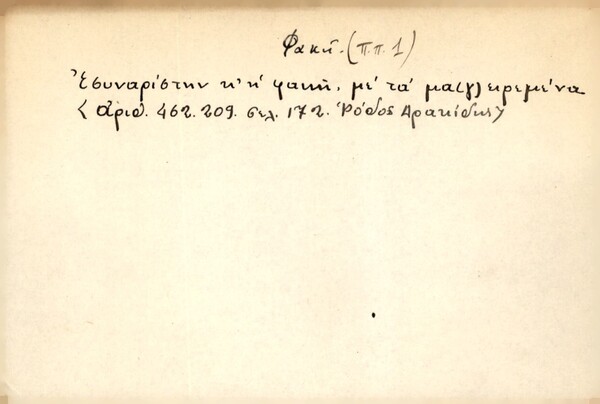 Φακῆ. (π.π. 1)
Ἐσυναρίστην κ' ἡ φακῆ, μέ τά μα(γ)ειρεμένα
< ἀριθ. 462. 209. σελ. 172. Ῥόδος Αρακίδης >